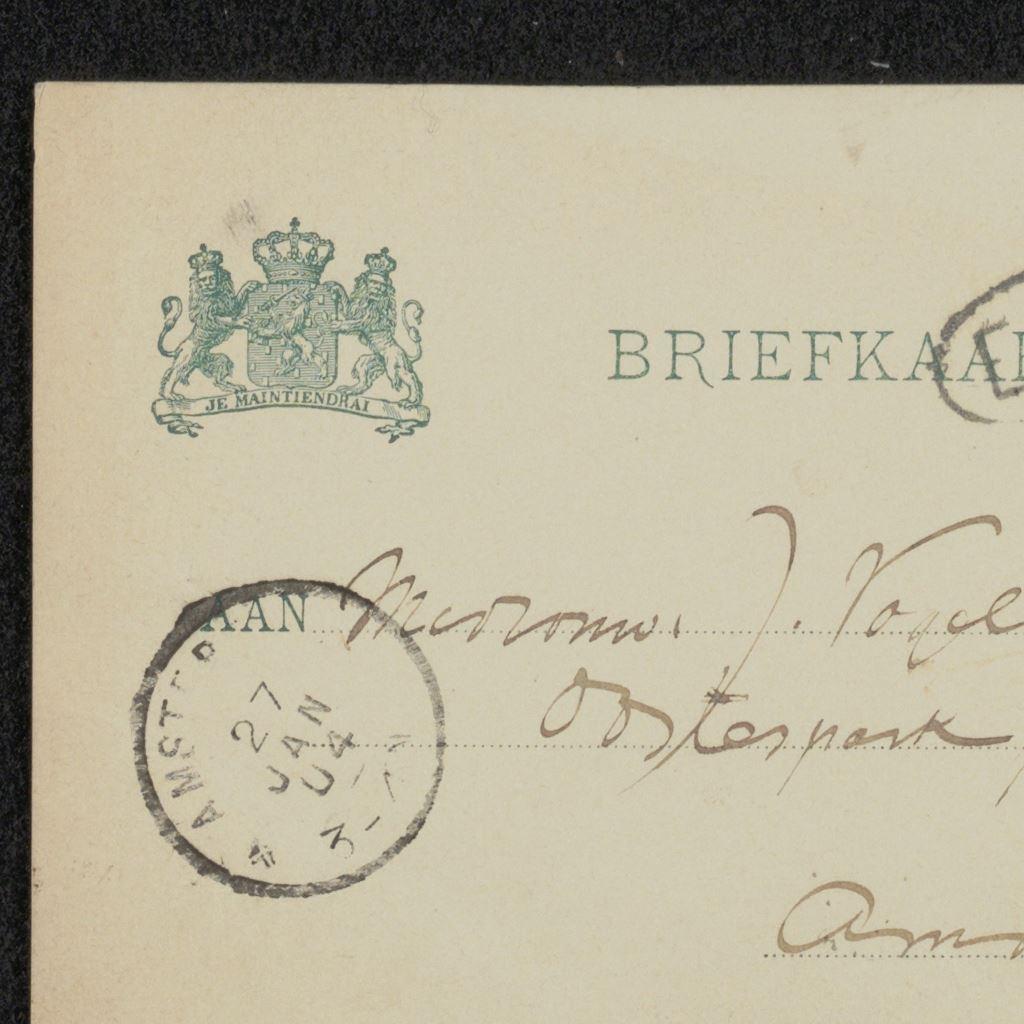 JE MAINTIENDRAI
BRIEFKAA
AAN Mevrouw J. Vogel
Oosterpark
Am
AMSTER
27
JAN
04
3-